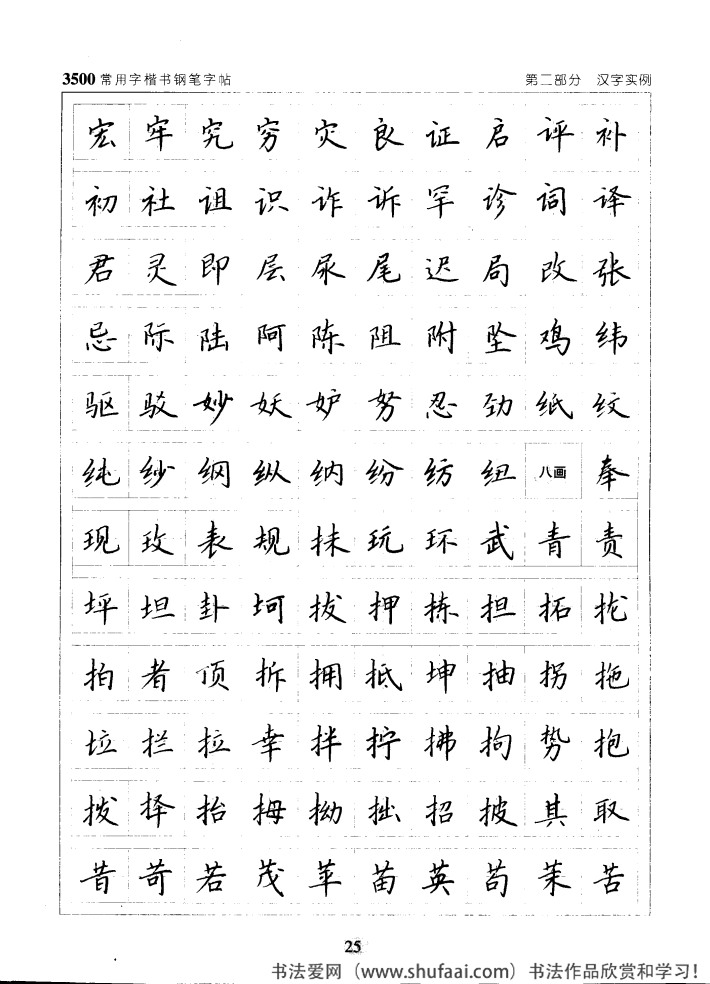 3500常用字楷书钢笔字帖 第二部分 汉字实例
宏 牢 究 穷 灾 良 证 启 评 补
初 社 诅 识 诈 诉 罕 诊 词 译
君 灵 即 层 尿 尾 迟 局 改 张
忌 际 陆 阿 陈 阻 附 坠 鸡 纬
驱 驳 妙 妖 妒 努 忍 劲 纸 纹
纯 纱 纲 纵 纳 纷 纺 纽 八画 奉
现 玫 表 规 抹 玩 环 武 青 责
坪 坦 卦 坷 拔 押 拣 担 拓 拢
拍 者 顶 拆 拥 抵 坤 抽 拐 拖
垃 拦 拉 幸 拌 拧 拂 拘 势 抱
拨 择 抬 拇 拗 拙 招 披 其 取
昔 苛 若 茂 苹 苗 英 苟 茉 苦
25
书法爱网（www.shufaai.com）书法作品欣赏和学习！